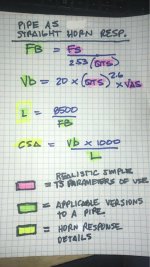 PIPE AS
STRAIGHT HORN RESP.
FB = FS
2.53 (QTS)
Vb = 20 × (QTS)^2.6 × VAS
L = 8500
FB
CSA = Vb × 1000
L
REALISTIC SIMPLE
= TS PARAMETERS OF USE
= APPLICABLE VERSIONS
TO A PIPE.
= HORN RESPONSE
DETAILS